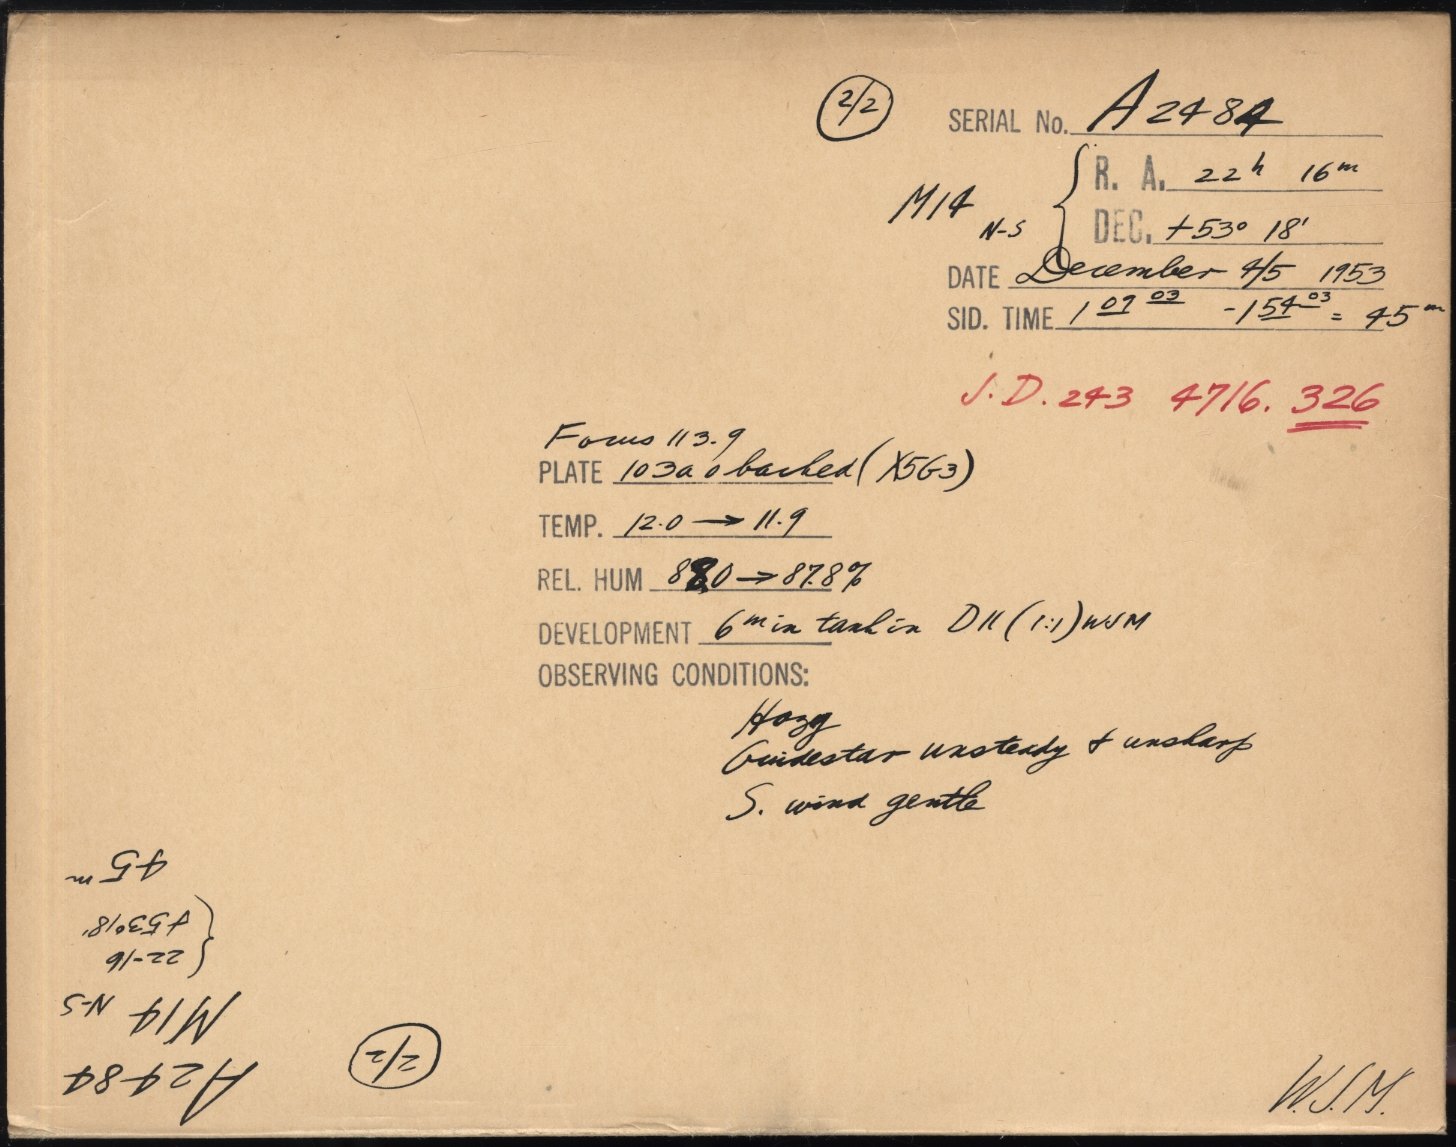 2/2
SERIAL No. A2484
M14 N-S { R. A. 22h 16m
DEC. +53° 18'
DATE December 4/5 1953
SID. TIME 1 09 03 - 1 54 03 = 45m
J.D. 243 4716.326
Focus 113.9
PLATE 103a o backed (X5G3)
TEMP. 12.0 → 11.9
REL. HUM 88.0 → 87.8%
DEVELOPMENT 6m in tank in D11 (1:1) WSM
OBSERVING CONDITIONS:
Hazy
Guidestar unsteady & unsharp
S. wind gentle
A2484
M14 N-S
22-16
+53°18'
45m
2/2
W.S.M.